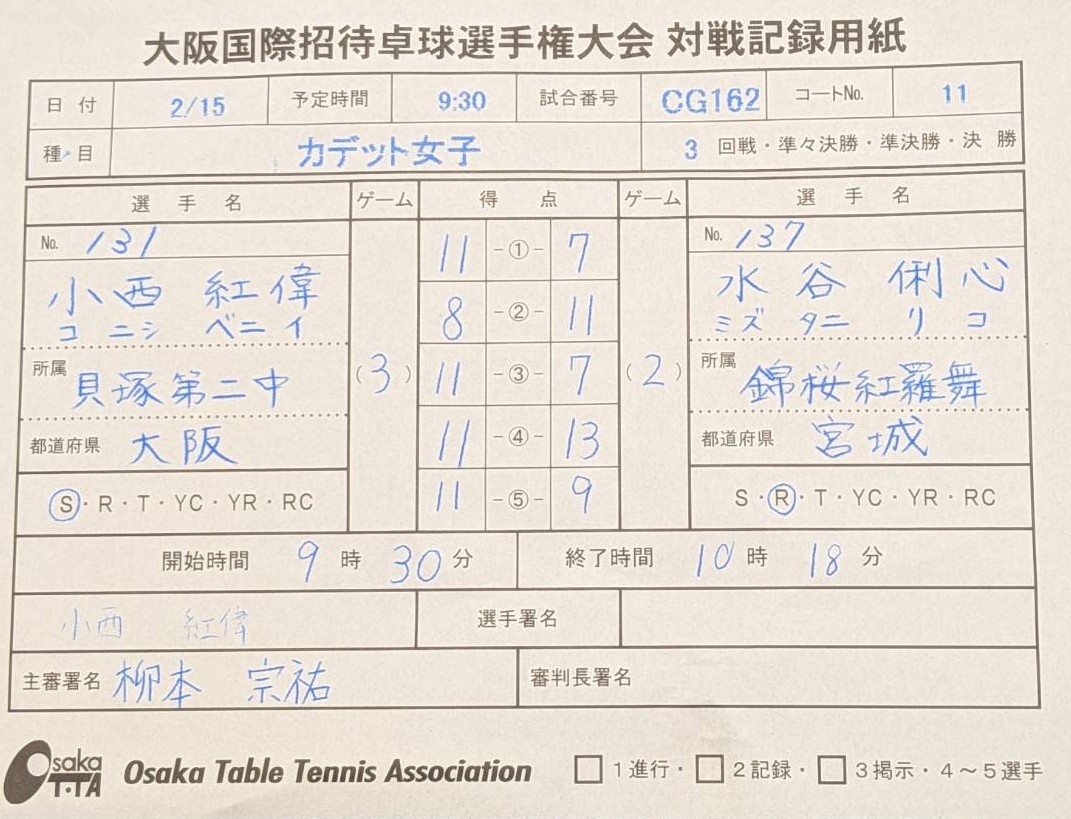 大阪国際招待卓球選手権大会 対戦記録用紙
日 付 2/15 予定時間 9:30 試合番号 CG162 コートNo. 11
種 目 カデット女子 3 回戦・準々決勝・準決勝・決 勝
選 手 名 ゲーム 得 点 ゲーム 選 手 名
No. 131 11 -①- 7 No. 137
小西 紅偉 水谷 俐心
コニシ ベニイ 8 -②- 11 ミズタニ リコ
所属 貝塚第二中 (3) 11 -③- 7 (2) 所属 錦桜紅羅舞
都道府県 大阪 11 -④- 13 都道府県 宮城
S・R・T・YC・YR・RC 11 -⑤- 9 S・R・T・YC・YR・RC
開始時間 9 時 30 分 終了時間 10 時 18 分
小西 紅偉 選手署名
主審署名 柳本 宗祐 審判長署名
Osaka T・TA Osaka Table Tennis Association □1進行・□2記録・□3掲示・4～5選手